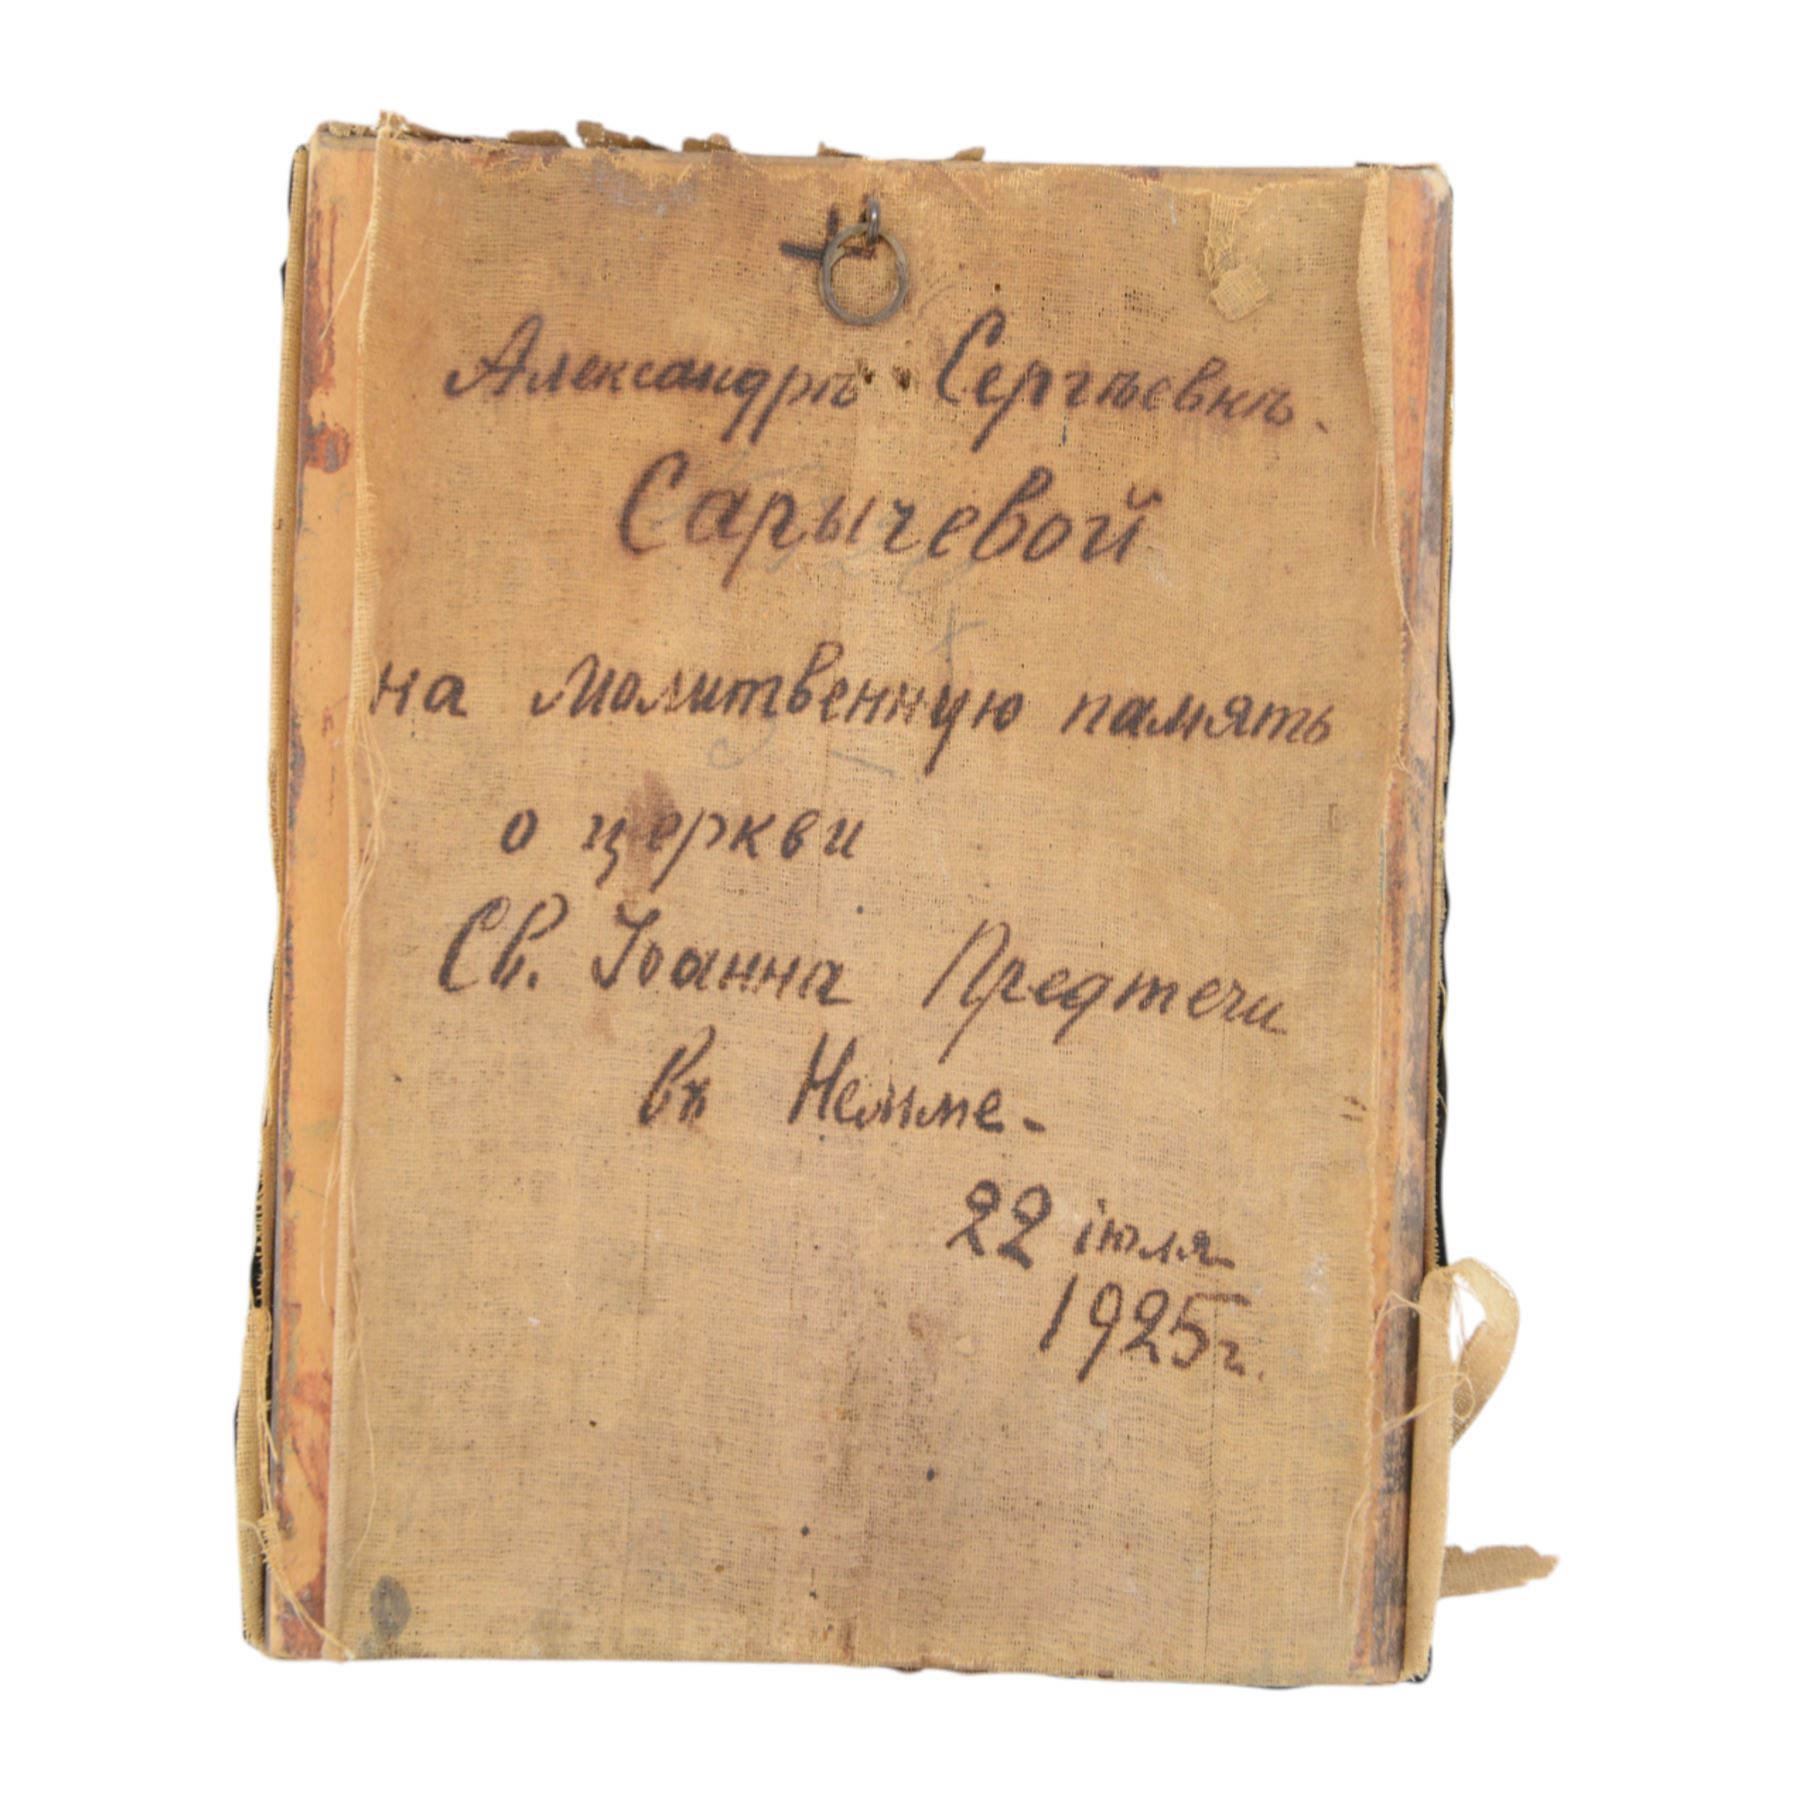 Александрѣ Сергѣевнѣ.
Сарычевой
на молитвенную память
о церкви
Св. Іоанна Предтечи
въ Немме-
22 іюля
1925 г.